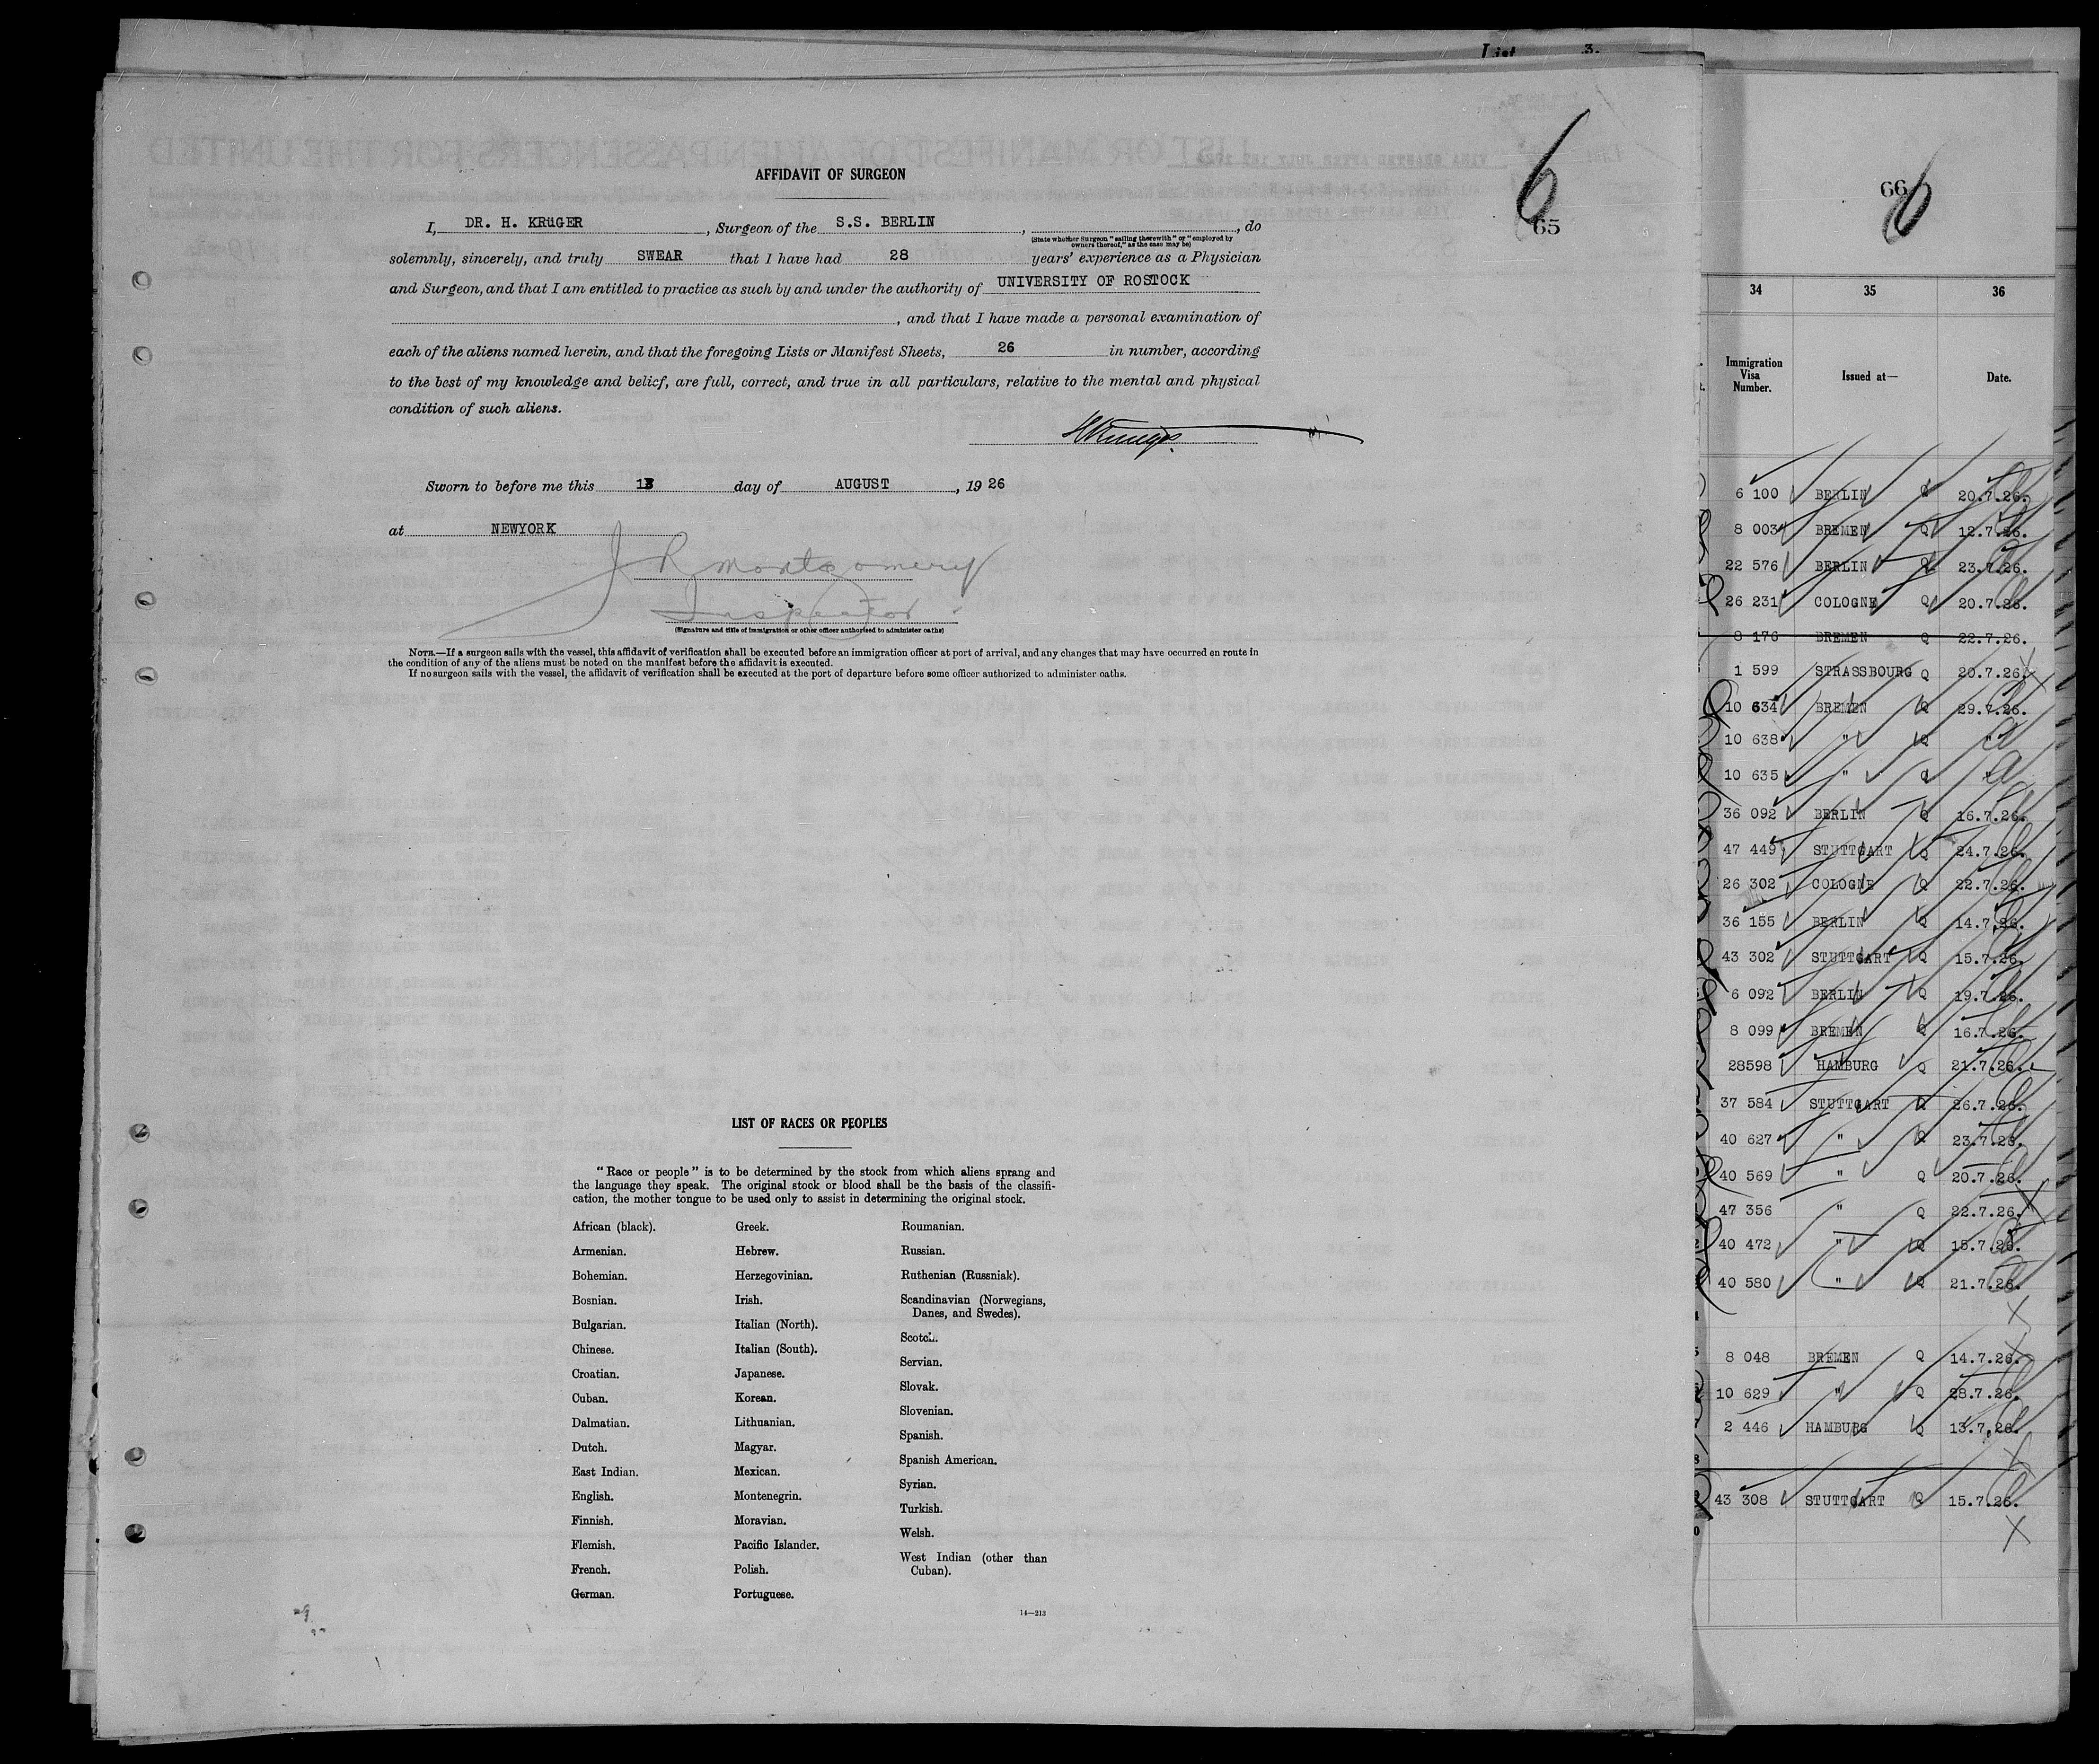 List 3.
6
65
AFFIDAVIT OF SURGEON
I, DR. H. KRüGER, Surgeon of the S.S. BERLIN, , do
(State whether Surgeon "sailing therewith" or "employed by
owners thereof," as the case may be)
solemnly, sincerely, and truly SWEAR that I have had 28 years' experience as a Physician
and Surgeon, and that I am entitled to practice as such by and under the authority of UNIVERSITY OF ROSTOCK
, and that I have made a personal examination of
each of the aliens named herein, and that the foregoing Lists or Manifest Sheets, 26 in number, according
to the best of my knowledge and belief, are full, correct, and true in all particulars, relative to the mental and physical
condition of such aliens.
Sworn to before me this 13 day of AUGUST, 1926
at NEWYORK
J R Montgomery
Inspector
(Signature and title of immigration or other officer authorized to administer oaths)
NOTE.—If a surgeon sails with the vessel, this affidavit of verification shall be executed before an immigration officer at port of arrival, and any changes that may have occurred en route in
the condition of any of the aliens must be noted on the manifest before the affidavit is executed.
If no surgeon sails with the vessel, the affidavit of verification shall be executed at the port of departure before some officer authorized to administer oaths.
LIST OF RACES OR PEOPLES
"Race or people" is to be determined by the stock from which aliens sprang and
the language they speak. The original stock or blood shall be the basis of the classifi-
cation, the mother tongue to be used only to assist in determining the original stock.
African (black).
Armenian.
Bohemian.
Bosnian.
Bulgarian.
Chinese.
Croatian.
Cuban.
Dalmatian.
Dutch.
East Indian.
English.
Finnish.
Flemish.
French.
German.
Greek.
Hebrew.
Herzegovinian.
Irish.
Italian (North).
Italian (South).
Japanese.
Korean.
Lithuanian.
Magyar.
Mexican.
Montenegrin.
Moravian.
Pacific Islander.
Polish.
Portuguese.
Roumanian.
Russian.
Ruthenian (Russniak).
Scandinavian (Norwegians,
Danes, and Swedes).
Scotch.
Servian.
Slovak.
Slovenian.
Spanish.
Spanish American.
Syrian.
Turkish.
Welsh.
West Indian (other than
Cuban).
14—213
66
6
34 35 36
Immigration
Visa
Number.
Issued at—
Date.
6 100 BERLIN Q 20.7.26.
8 003 BREMEN Q 12.7.26.
22 576 BERLIN Q 23.7.26.
26 231 COLOGNE Q 20.7.26.
8 176 BREMEN Q 22.7.26.
1 599 STRASSBOURG Q 20.7.26.
10 634 BREMEN Q 29.7.26.
10 638 " Q "
10 635 " Q "
36 092 BERLIN Q 16.7.26.
47 449 STUTTGART Q 24.7.26.
26 302 COLOGNE Q 22.7.26.
36 155 BERLIN Q 14.7.26.
43 302 STUTTGART Q 15.7.26.
6 092 BERLIN Q 19.7.26.
8 099 BREMEN Q 16.7.26.
28598 HAMBURG Q 21.7.26.
37 584 STUTTGART Q 26.7.26.
40 627 " Q 23.7.26.
40 569 " Q 20.7.26.
47 356 " Q 22.7.26.
40 472 " Q 15.7.26.
40 580 " Q 21.7.26.
8 048 BREMEN Q 14.7.26.
10 629 " Q 28.7.26.
2 446 HAMBURG Q 13.7.26.
43 308 STUTTGART Q 15.7.26.